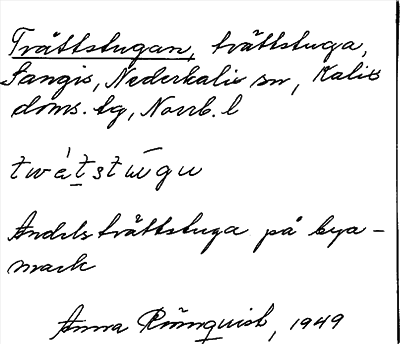 Tvättstugan, tvättstuga,
Sangis, Nederkalix sn, Kalix
doms. tg, Norrb. l
twàt̲stūgu
Andelstvättstuga på bya-
mark
Anna Rönnquist, 1949